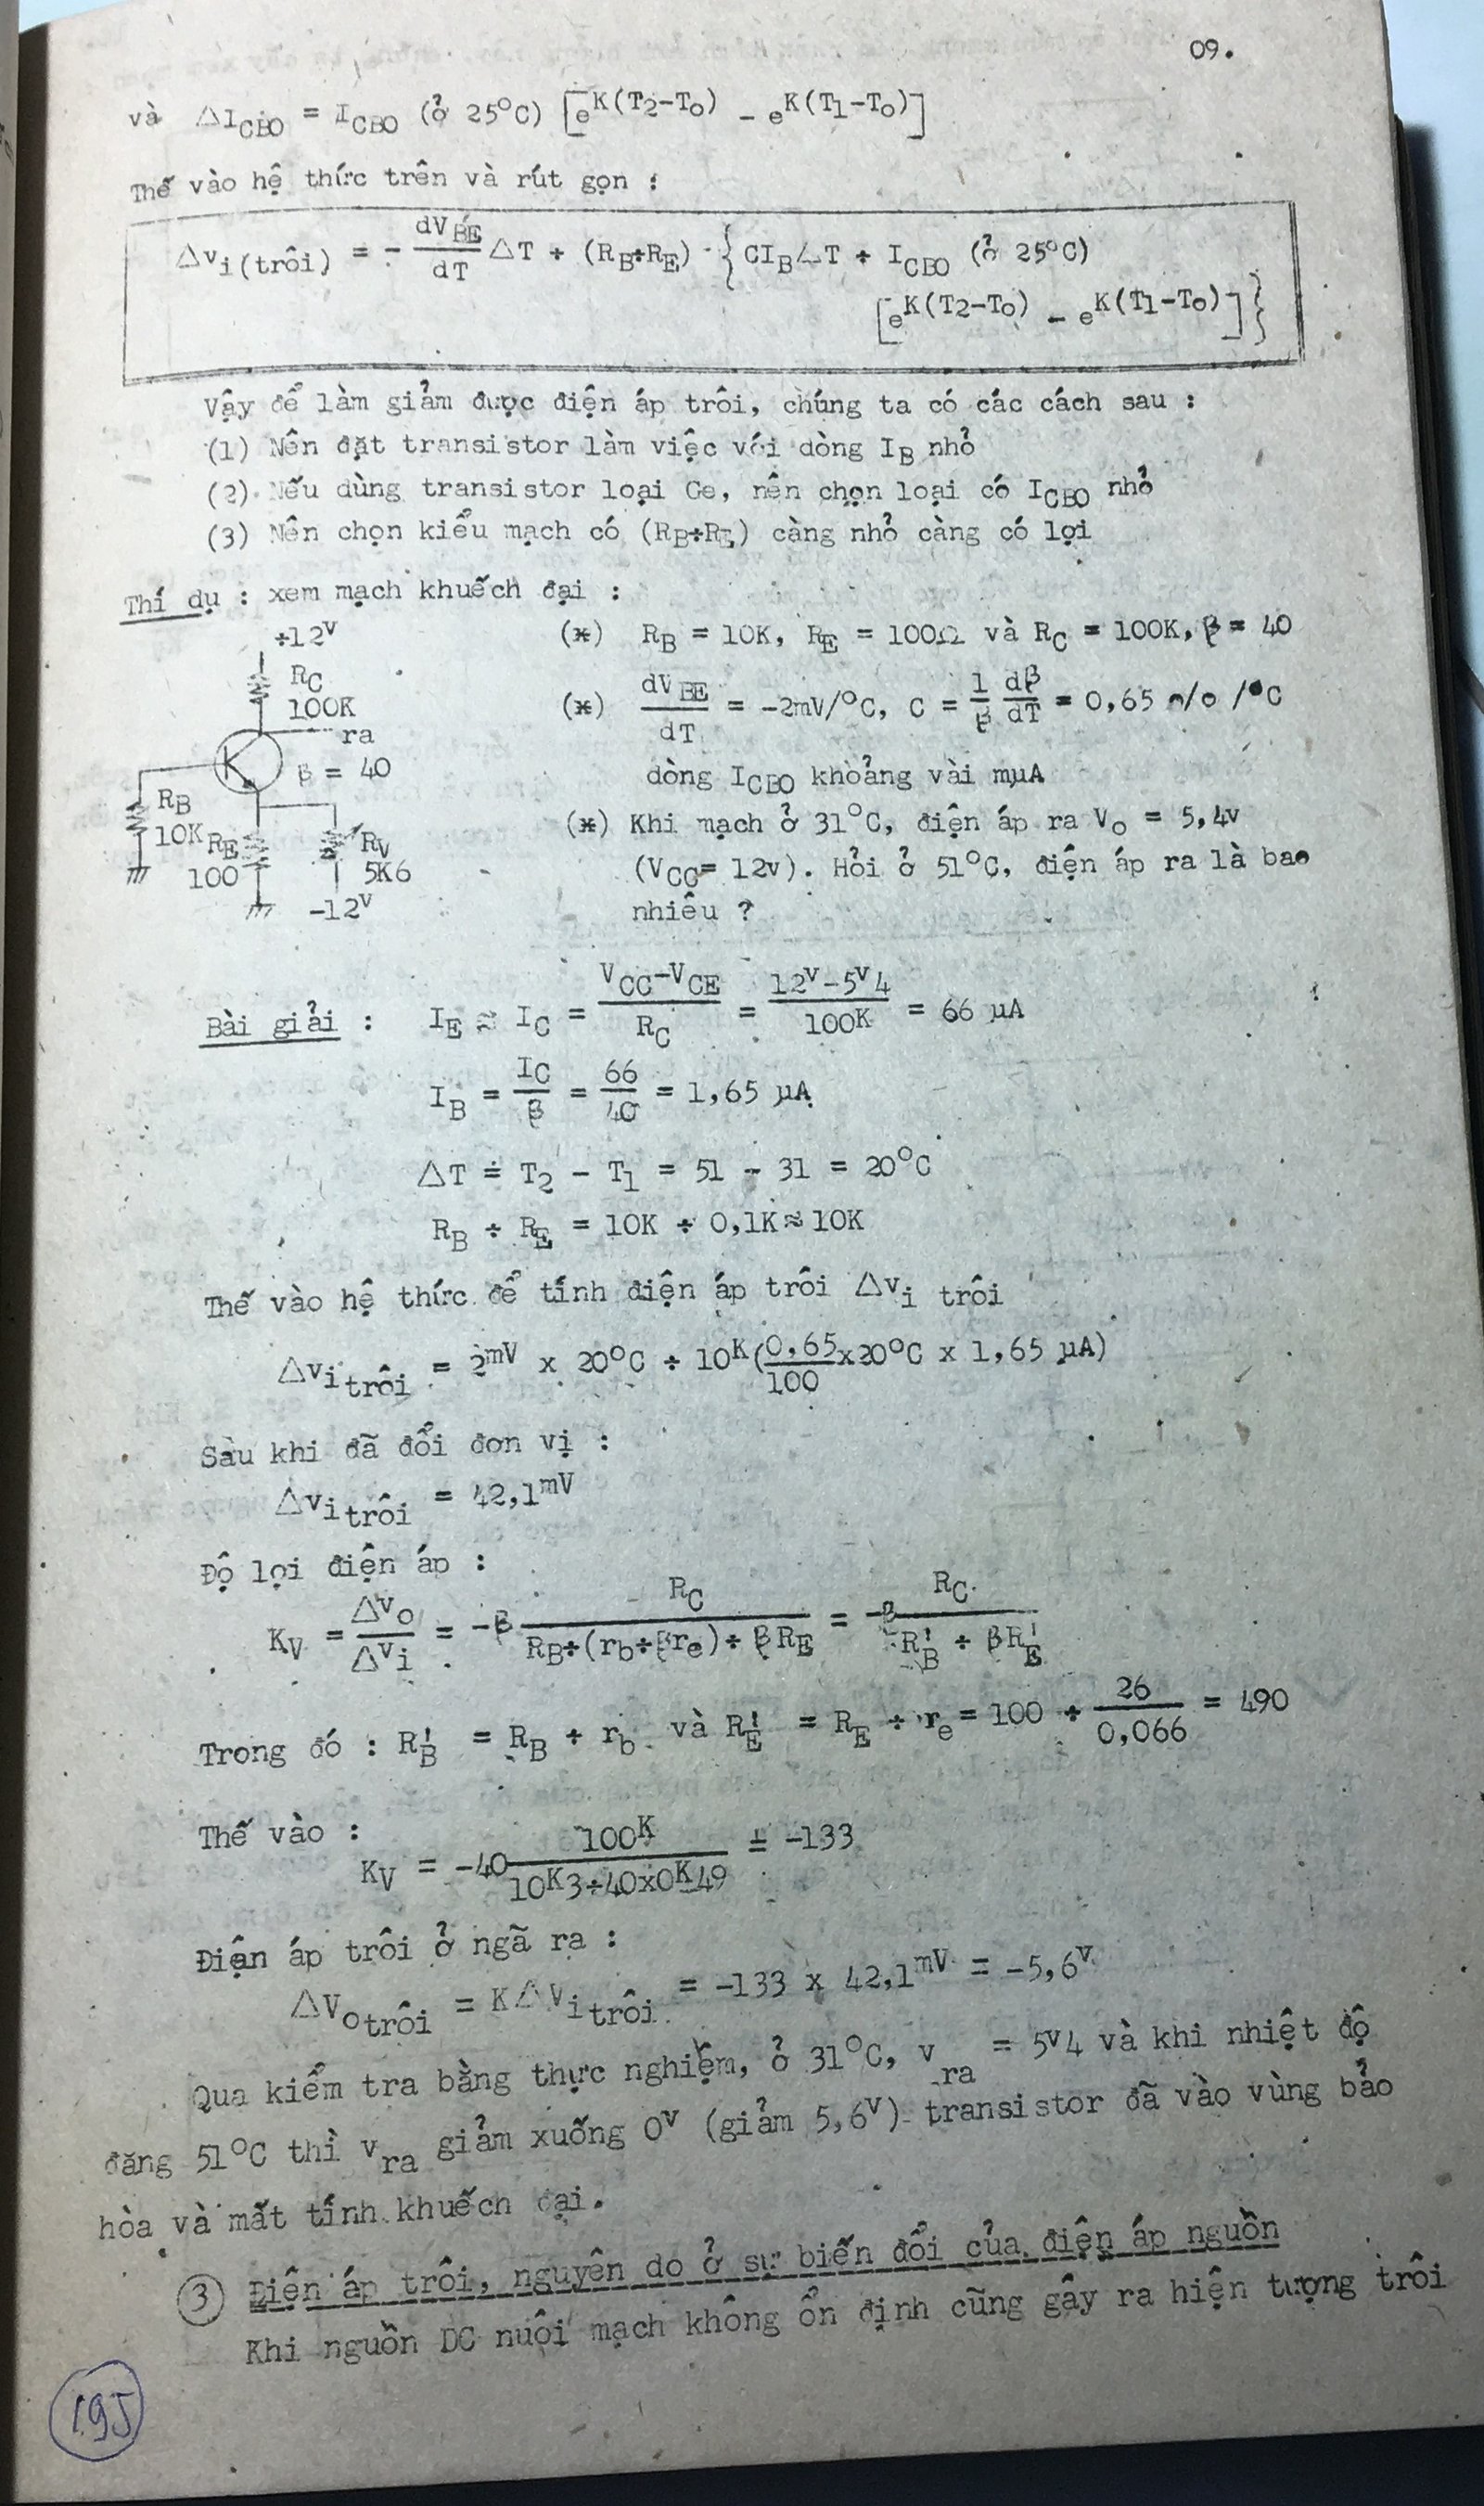 09.
và △I_CBO = I_CBO (ở 25°C) [e^K(T2-To) - e^K(T1-To)]
Thế vào hệ thức trên và rút gọn :
△v_i(trôi) = - dV_BE/dT △T + (R_B+R_E) · {CI_B△T + I_CBO (ở 25°C)
[e^K(T2-To) - e^K(T1-To)]}
Vậy để làm giảm được điện áp trôi, chúng ta có các cách sau :
(1) Nên đặt transistor làm việc với dòng I_B nhỏ
(2) Nếu dùng transistor loại Ge, nên chọn loại có I_CBO nhỏ
(3) Nên chọn kiểu mạch có (R_B+R_E) càng nhỏ càng có lợi
Thí dụ : xem mạch khuếch đại :
+12V
R_C
100K
ra
β = 40
R_B
10K
R_E
100
R_V
5K6
-12V
(*) R_B = 10K, R_E = 100Ω và R_C = 100K, β = 40
(*) dV_BE/dT = -2mV/°C, C = 1/β dβ/dT = 0,65 o/o /°C
dòng I_CBO khoảng vài mµA
(*) Khi mạch ở 31°C, điện áp ra V_o = 5,4v
(V_CC= 12v). Hỏi ở 51°C, điện áp ra là bao
nhiêu ?
Bài giải : I_E ≈ I_C = (V_CC-V_CE)/R_C = (12V-5V4)/100K = 66 µA
I_B = I_C/β = 66/40 = 1,65 µA
△T = T2 - T1 = 51 - 31 = 20°C
R_B + R_E = 10K + 0,1K ≈ 10K
Thế vào hệ thức để tính điện áp trôi △v_i trôi
△v_i trôi = 2mV x 20°C + 10K(0,65/100 x20°C x 1,65 µA)
Sàu khi đã đổi đơn vị :
△v_i trôi = 42,1mV
Độ lợi điện áp :
K_V = △v_o/△v_i = -β R_C/(R_B+(r_b+βr_e)+ βR_E) = -β R_C/(R'_B + βR'_E)
Trong đó : R'_B = R_B + r_b và R'_E = R_E + r_e = 100 + 26/0,066 = 490
Thế vào :
K_V = -40 100K/(10K3+40x0K49) = -133
Điện áp trôi ở ngã ra :
△V_o trôi = K△V_i trôi = -133 x 42,1mV = -5,6V
Qua kiểm tra bằng thực nghiệm, ở 31°C, v_ra = 5V4 và khi nhiệt độ
đăng 51°C thì v_ra giảm xuống 0V (giảm 5,6V) transistor đã vào vùng bảo
hòa và mất tính khuếch đại.
3 Điện áp trôi, nguyên do ở sự biến đổi của điện áp nguồn
Khi nguồn DC nuôi mạch không ổn định cũng gây ra hiện tượng trôi
195